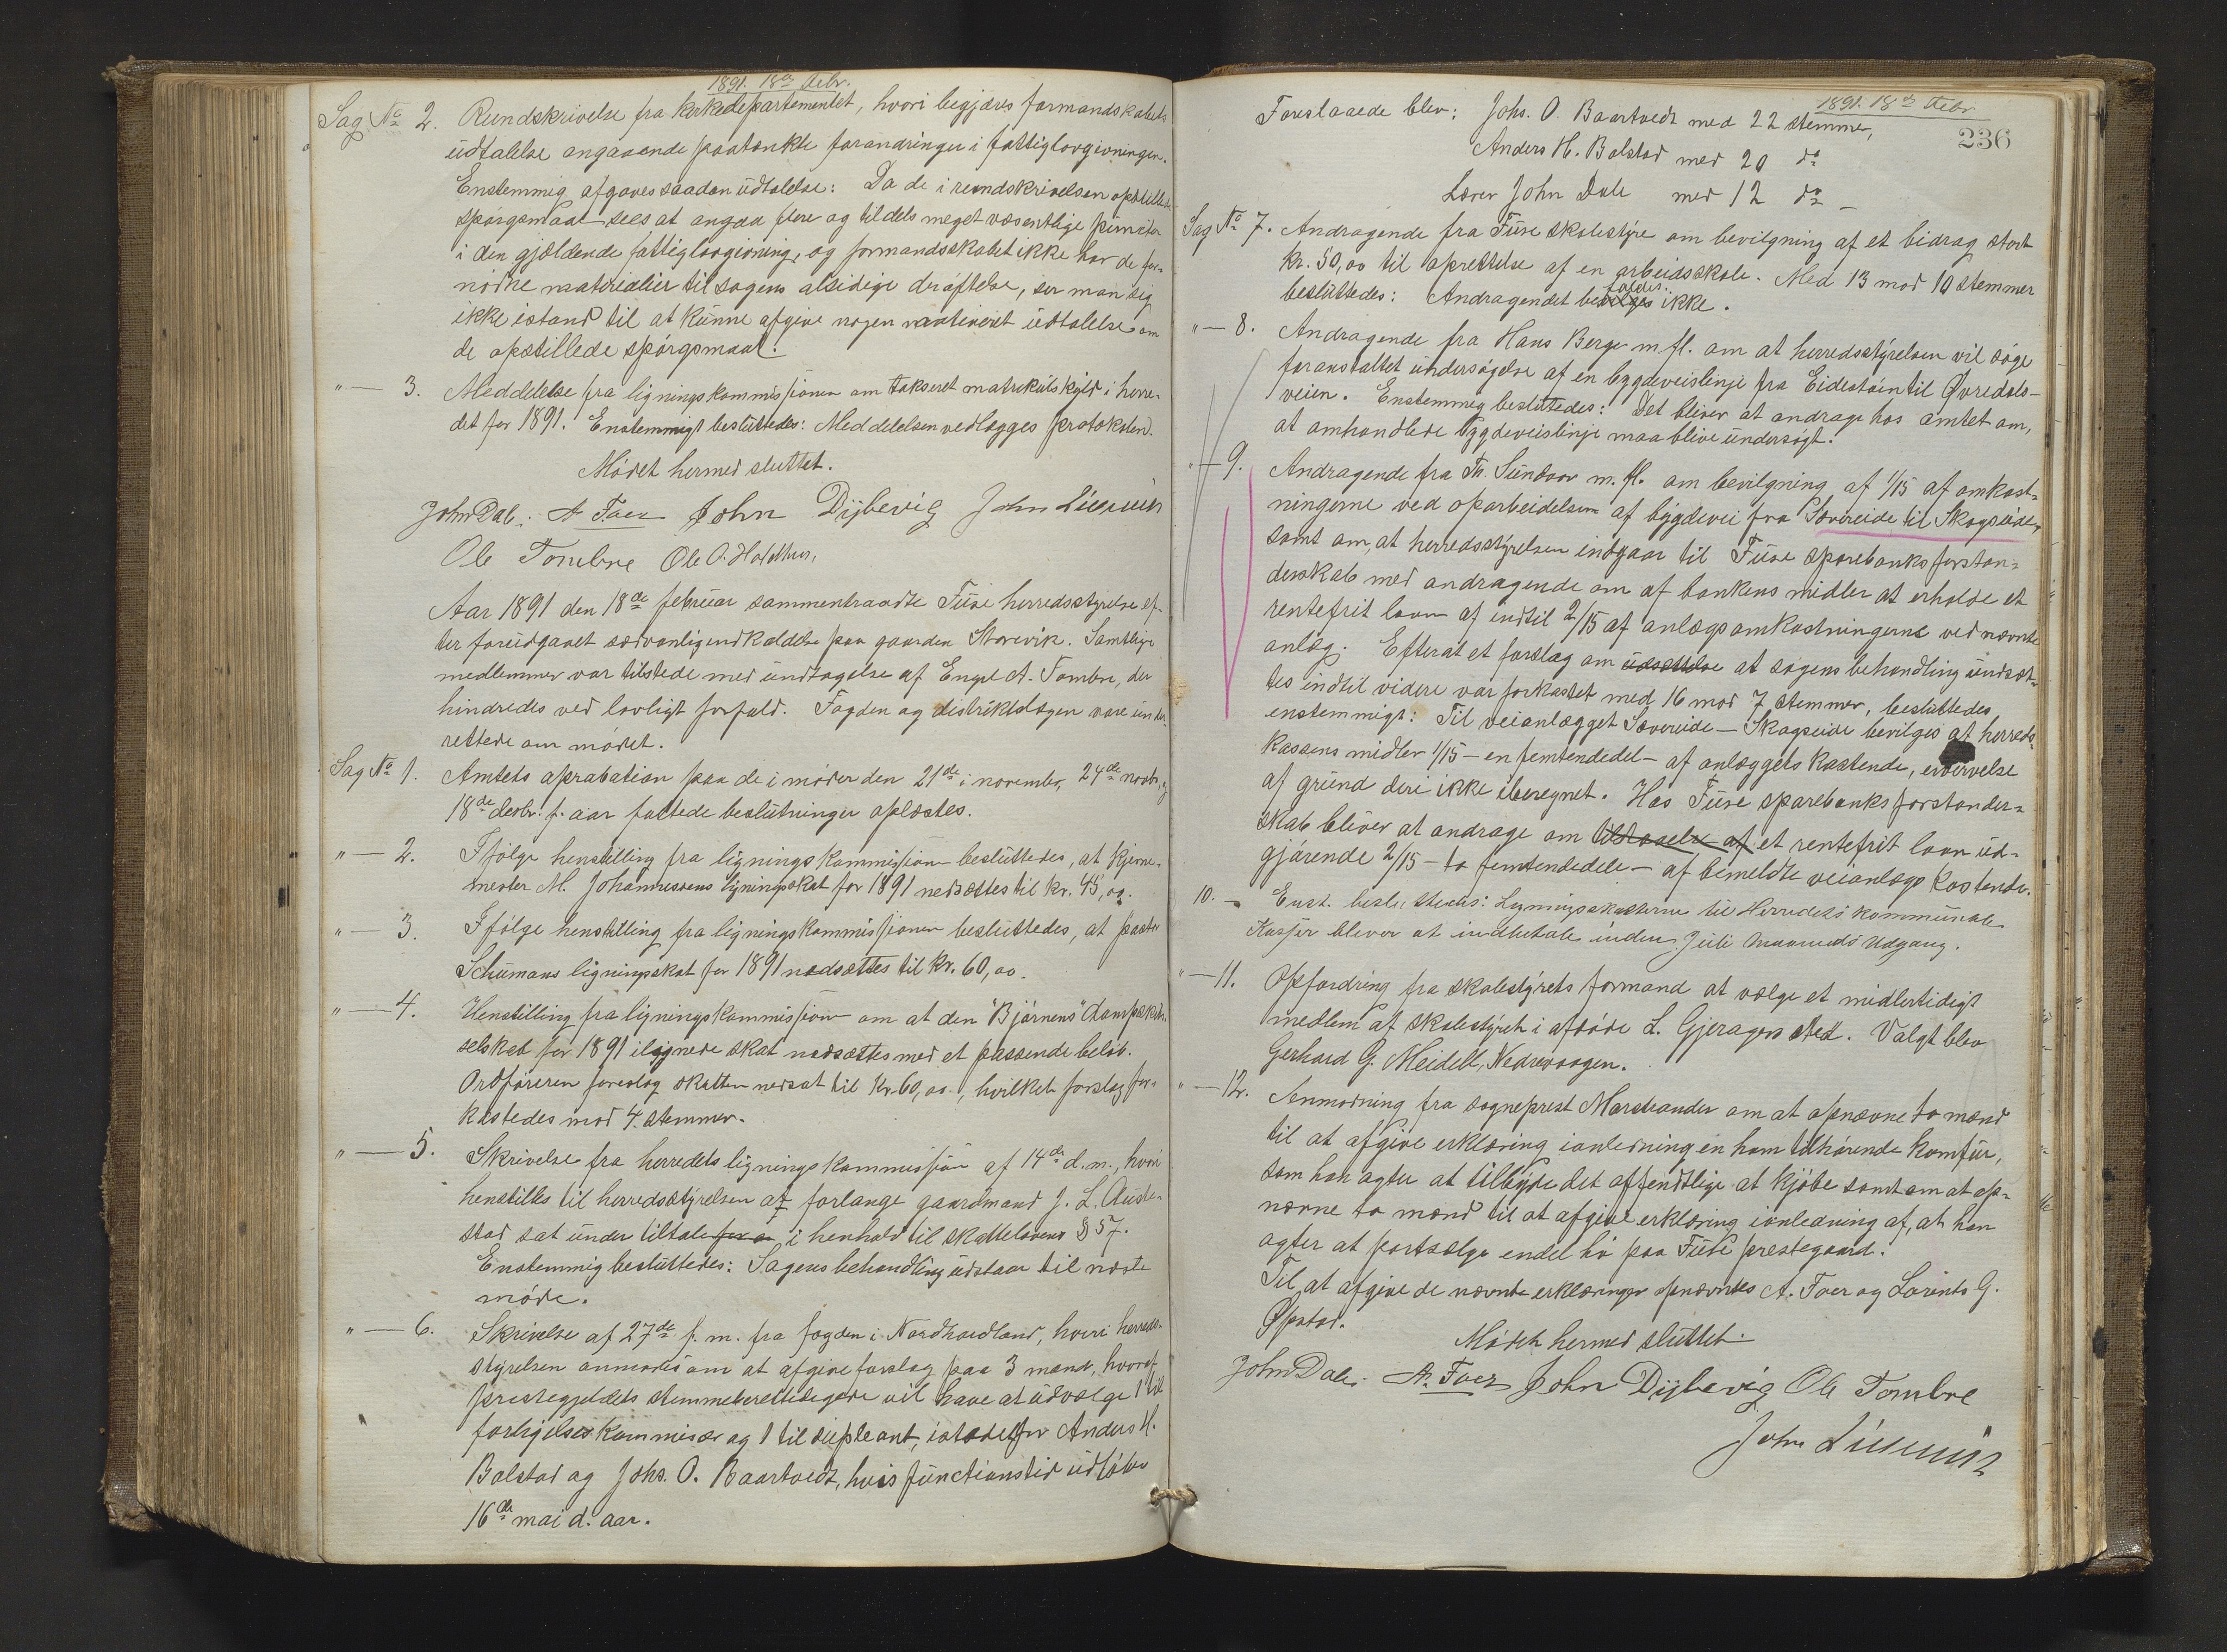 1891. 18de febr.
Sag No 2. Rundskrivelse fra kirkedepartementet, hvori begjæres formandskabets
udtalelse angaaende paatænkte forandringer i fattiglovgivningen.
Enstemmig afgaves saadan udtalelse: Da de i rundskrivelsen opstillede
spørgsmaal sees at angaa flere og tildels meget væsentlige puncter
i den gjældende fattiglovgivning, og formandsskabet ikke har de for-
nødne materialier til sagens alsidige drøftelse, ser man sig
ikke istand til at kunne afgive nogen motiveret udtalelse om
de opstillede spørgsmaal.
"— 3. Meddelelse fra ligningskommissionen om takseret matrikulskyld i herre-
det for 1891. Enstemmigt besluttedes: Meddelelsen vedlægges protokolen.
Mødet hermed sluttet.
John Dale. A. Foer John Dyvevig John
Ole Tombre Ole O. Holdhus.
Aar 1891 den 18de februar sammentraadte Fuse herredsstyrelse ef-
ter forudgaaet sædvanlig indkaldelse paa gaarden Storevik. Samtlige
medlemmer var tilstede med undtagelse af Engel A. Tombre, der
hindredes ved lovligt forfald. Fogden og distriktslægen vare under-
rettede om mødet.
Sag No 1. Amtets aprobation paa de i møder den 21de i november, 24de novbr. og
18de decbr. f. aar fattede beslutninger oplæstes.
"— 2. Ifølge henstilling fra ligningskommissionen besluttedes, at kjørne-
mester M. Johannessens ligningsskat for 1891 nedsættes til kr. 45,00.
"— 3. Ifølge henstilling fra ligningskommissionen besluttedes, at pastor
Schumans ligningsskat for 1891 nedsættes til kr. 60,00.
"— 4. Henstilling fra ligningskommission om at den "Bjørnens" dampskibs-
selskab for 1891 ilignede skat nedsættes med et passende beløb.
Ordføreren foreslog skatten nedsat til kr. 60,00, hvilket forslag for-
kastedes mod 4 stemmer.
"— 5. Skrivelse fra herredets ligningskommission af 14de d.m., hvori
henstilles til herredsstyrelsen at forlange gaardmand J. L. Auste-
stad sat under tiltale for i henhold til skattelovens § 57.
Enstemmig besluttedes: Sagens behandling udstaar til næste
møde.
"— 6. Skrivelse af 27de f. m. fra fogden i Nordhordland, hvori herreds-
styrelsen anmodes om at afgive forslag paa 3 mænd, hvoraf
prestegjeldets stemmeberettigede vil have at udvælge 1 til
forligelseskommisær og 1 til supleant, istedetfor Anders H.
Bolstad og Johs. O. Baartvedt, hvis functionstid udløber
16de mai d. aar.
1891. 18de febr.
236
Foreslaaede blev: Johs. O. Baartvedt med 22 stemmer,
Anders H. Bolstad med 20 do
Lærer John Dale med 12 do —
Sag No 7. Andragende fra Fuse skolestyre om bevilgning af et bidrag stort
kr. 50,00 til oprettelse af en arbeidsskole. Med 13 mod 10 stemmer
besluttedes: Andragendet bevilges ikke.
"— 8. Andragende fra Hans Berge m fl. om at herredsstyrelsen vil søge
foranstaltet undersøgelse af en bygdeveislinje fra Eidestøen til Øvredals-
veien. Enstemmig besluttedes: Det bliver at andrage hos amtet om,
at omhandlede bygdeveislinje maa blive undersøgt.
"— 9. Andragende fra Th. Sundvor m. fl. om bevilgning af 1/15 af omkost-
ningerne ved oparbeidelsen af bygdevei fra Sævereide til Skogseide,
samt om, at herredsstyrelsen indgaar til Fuse sparebanks forstan-
derskab med andragende om af bankens midler at erholde et
rentefrit laan af indtil 2/15 af anlægsomkostningerne ved nævnte
anlæg. Efterat et forslag om udsættelse at sagens behandling undsæt-
tes indtil videre var forkastet med 16 mod 7 stemmer, besluttedes
enstemmigt: Til veianlægget Sævereide — Skogseide bevilges af herreds-
kassens midler 1/15 — en femtendedel — af anlæggets kostende, erhvervelse
af grund deri ikke iberegnet. Hos Fuse sparebanks forstander-
skab bliver at andrage om tilstaaelse af et rentefrit laan ud-
gjørende 2/15 — to femtendedele — af bemeldte veianlægs kostende.
10. — Enst. besluttedes: Ligningsskatterne til Herredets kommunale
Kasser bliver at indbetale inden Juli Maaneds Udgang.
"— 11. Opfordring fra skolestyrets formand at vælge et midlertidigt
medlem af skolestyret i afdøde L. Gjeragers sted. Valgt blev
Gerhard G. Meidell, Nedrevaagen.
"— 12. Anmodning fra sogneprest Marstrander om at opnævne to mænd
til at afgive erklæring i anledning en ham tilhørende komfur,
som han agter at tilbyde det offendtlige at kjøbe samt om at op-
nævne to mænd til at afgive erklæring i anledning af, at han
agter at fortsælge endel hø paa Fuse prestegaard.
Til at afgive de nævnte erklæringer opnævntes A. Foer og Lorents G.
Øpstad.
Mødet hermed sluttet.
John Dale. A. Foer John Dyvevig Ole Tombre
John